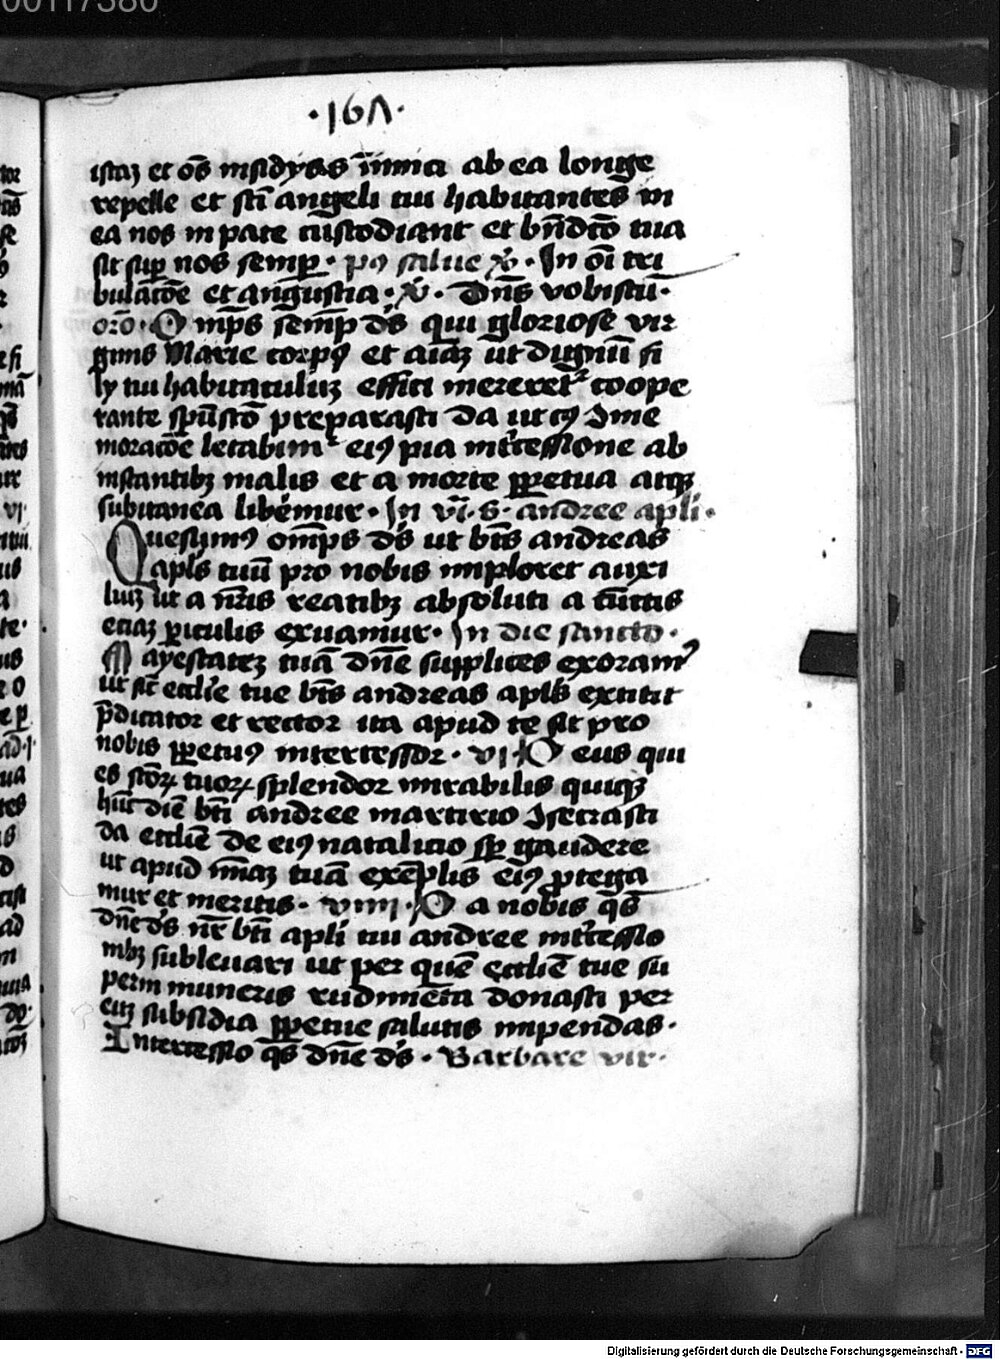 00117380
·167·
istaʒ et oē̄s insidyas īimici ab ea longe
repelle et sc̄ti angeli tui habitantes in
ea nos in pace custodiant et bn̄dcō tua
sit sup̲ nos semp̲ · pꝰ salue v̄ · In oī tri
bulacōe et angustia · v̄ · Dn̄s vobiscū ·
orō · Omp̄s semp̲ ds̄ qui gloriose vir
ginis Marie corpꝰ et aīaʒ ut dignū fi
ly tui habitaculuʒ effici mereret᷑ coope
rante spūscō preparasti da ut cꝰ ꝯme
moracōe letabim᷑ eiꝰ pia int̄cessione ab
instantibʒ malis et a morte p̲petua atqʒ
subitanea liberemur · In vī · s · andree apl̄i ·
Quesumꝰ omp̄s ds̄ ut bt̄s andreas
apl̄s tuū pro nobis imploret auxi
liuʒ ut a nr̄is reatibʒ absoluti a cūctis
eciaʒ p̲iculis exuamur · In die sancto ·
Mayestateʒ tuā dn̄e supplices exoramꝰ
ut sic̄ eccl̄ie tue bt̄s andreas apl̄s extitit
p̄dicator et rector ita apud te sit pro
nobis p̲petuꝰ intercessor · vi · Deus qui
es sc̄toꝝ tuoꝝ splendor mirabilis quiqʒ
hūc diē bt̄i andree martirio ꝯsecrasti
da eccl̄ie de eiꝰ natalicio sp̲ gaudere
ut apud mīaʒ tuā exēplis eiꝰ p̲tega
mur et meritis · viiii · Da nobis qs̄
dn̄e ds̄ nr̄ bt̄i apl̄i tui andree int̄cessio
nibʒ subleuari ut per quē eccl̄ie tue su
perni muneris rudimēta donasti per
euʒ subsidia p̲petue salutis impendas ·
Intercessio qs̄ dn̄e ds̄ · Barbare vir ·
Digitalisierung gefördert durch die Deutsche Forschungsgemeinschaft - DFG